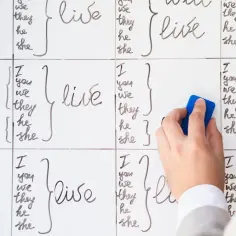 we
they
he
she
live
we
they
he
she
live
I
you
we
they
he
she
live
I
you
we
they
he
she
I
you
we
they
he
she
live
I
you
we
they
he
she